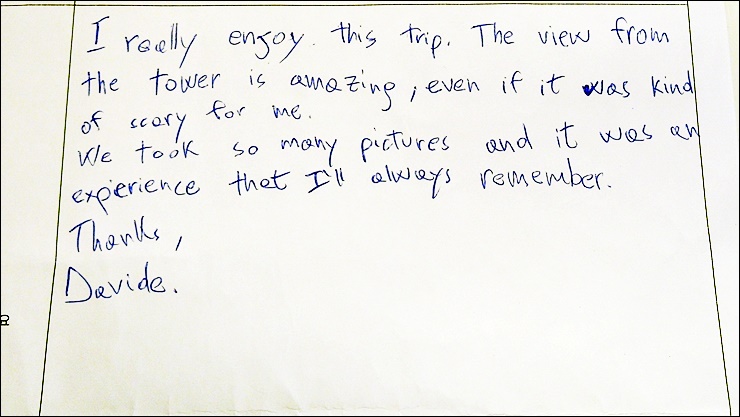 I really enjoy this trip. The view from
the tower is amazing, even if it was kind
of scary for me.
We took so many pictures and it was an
experience that I'll always remember.
Thanks,
Davide.